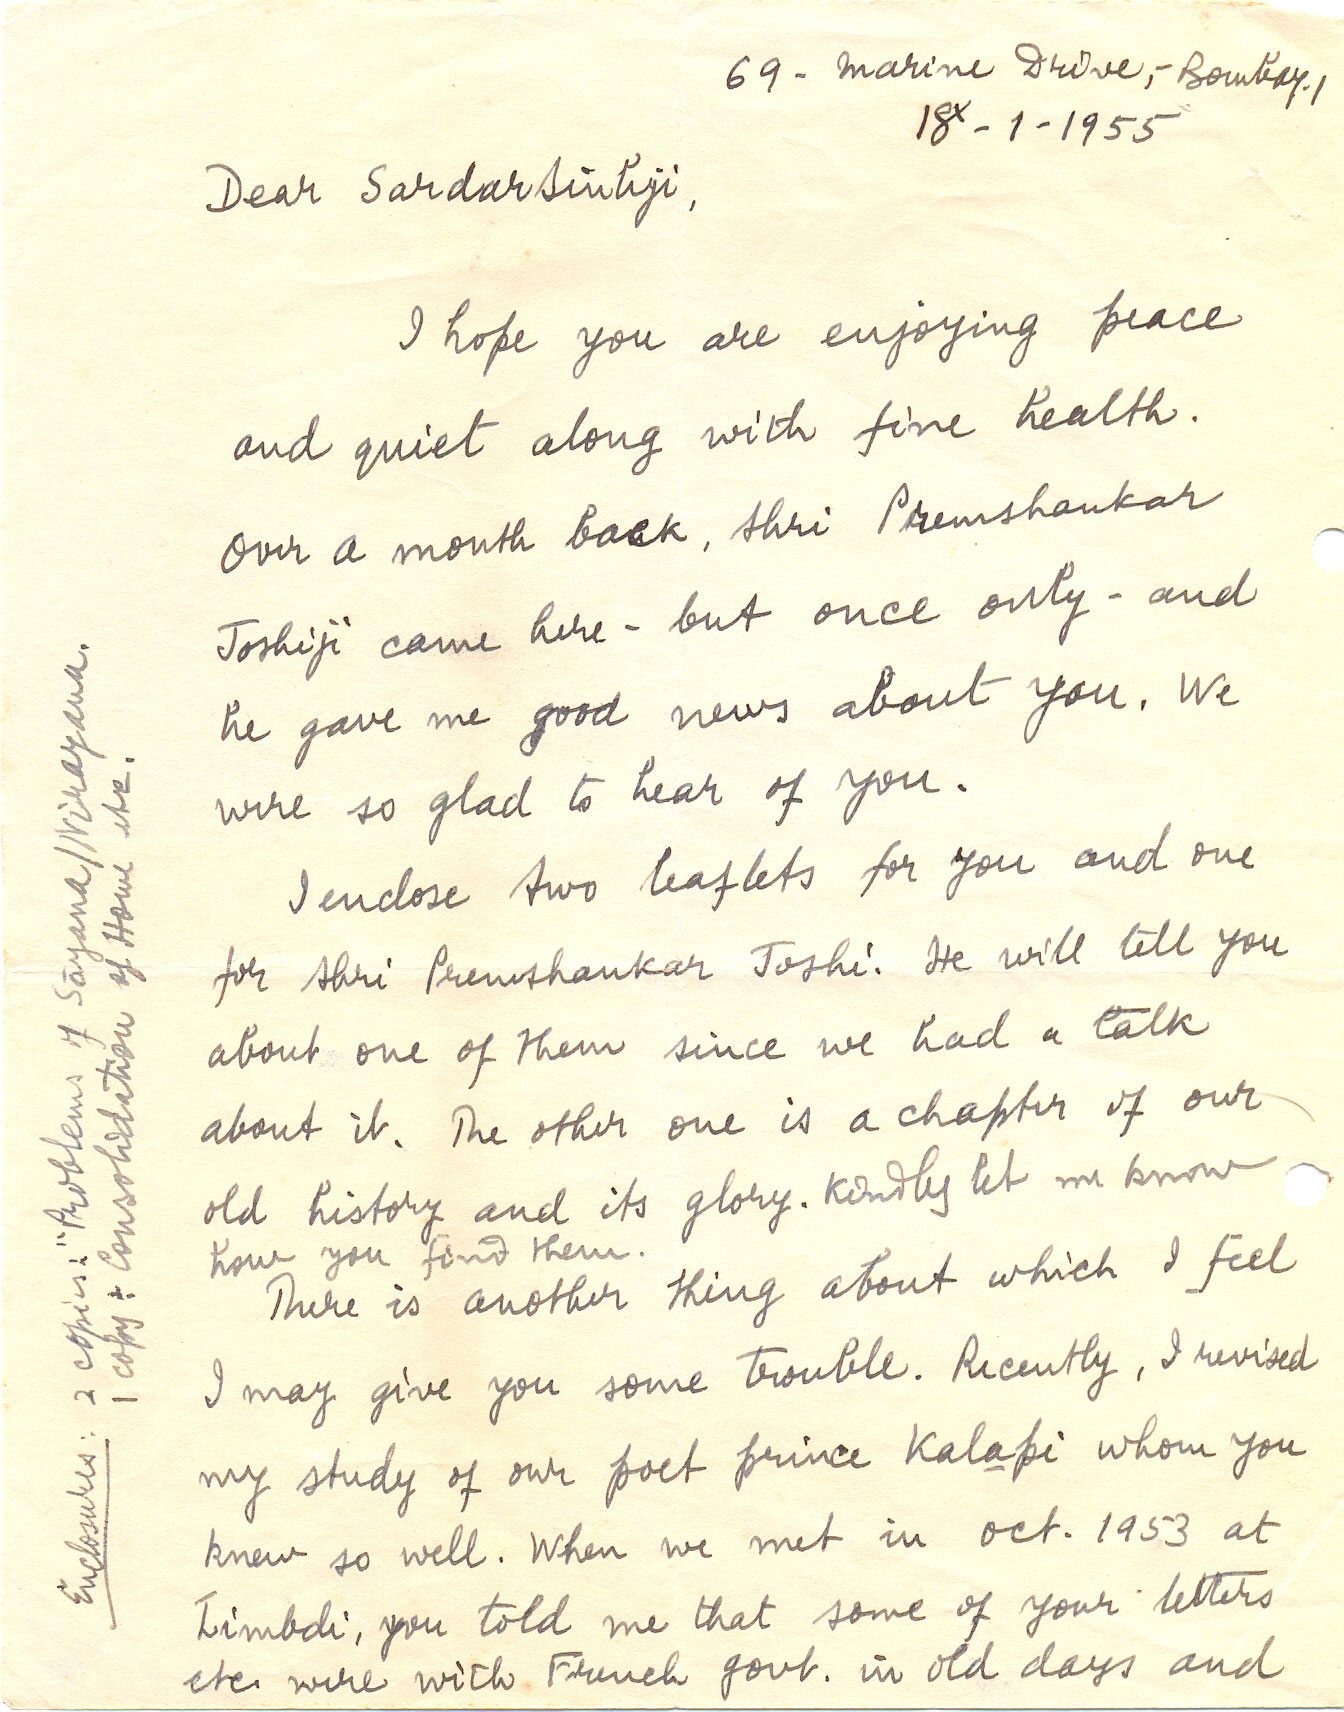 69 - Marine Drive, - Bombay. 1
18x - 1 - 1955
Dear Sardarsinhji,
I hope you are enjoying peace
and quiet along with fine health.
Over a month back, Shri Premshankar
Joshiji came here - but once only - and
he gave me good news about you. We
were so glad to hear of you.
I enclose two leaflets for you and one
for Shri Premshankar Joshi. He will tell you
about one of them since we had a talk
about it. The other one is a chapter of our
old history and its glory. Kindly let me know
how you find them.
There is another thing about which I feel
I may give you some trouble. Recently, I revised
my study of our poet prince Kalapi whom you
knew so well. When we met in Oct. 1953 at
Limbdi, you told me that some of your letters
etc. were with French govt. in old days and
Enclosures: 2 copies: "Problems of Sāyana/Nirayana.
1 copy: Consolidation of Home etc.